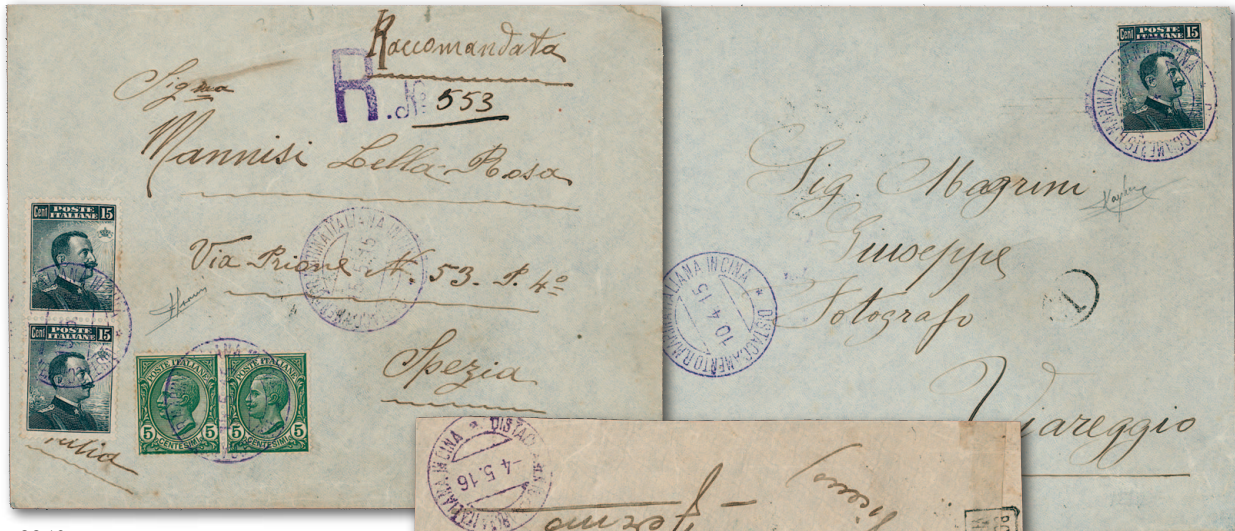 Raccomandata
R. No 553
Sigma
Mannisi Bella Rosa
Via Prione No 53. P. 4º
Spezia
Cent POSTE ITALIANE 15
Cent POSTE ITALIANE 15
POSTE ITALIANE
5 CENTESIMI 5
POSTE ITALIANE
5 CENTESIMI 5
MARINA ITALIANA IN CINA
Cent POSTE ITALIANE 15
Sig. Magrini
Giuseppe
Fotografo
Viareggio
DISTACCAMENTO R. MARINA ITALIANA IN CINA
10 4 15
ITALIANA IN CINA * DISTAC
4 5.16